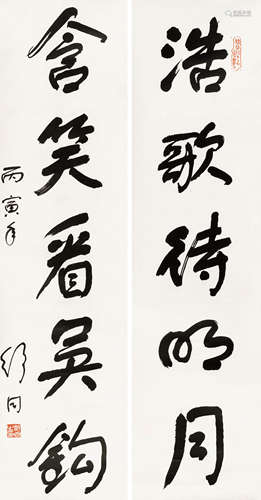 浩歌待明月
含笑看吴钩
丙寅年
舒同